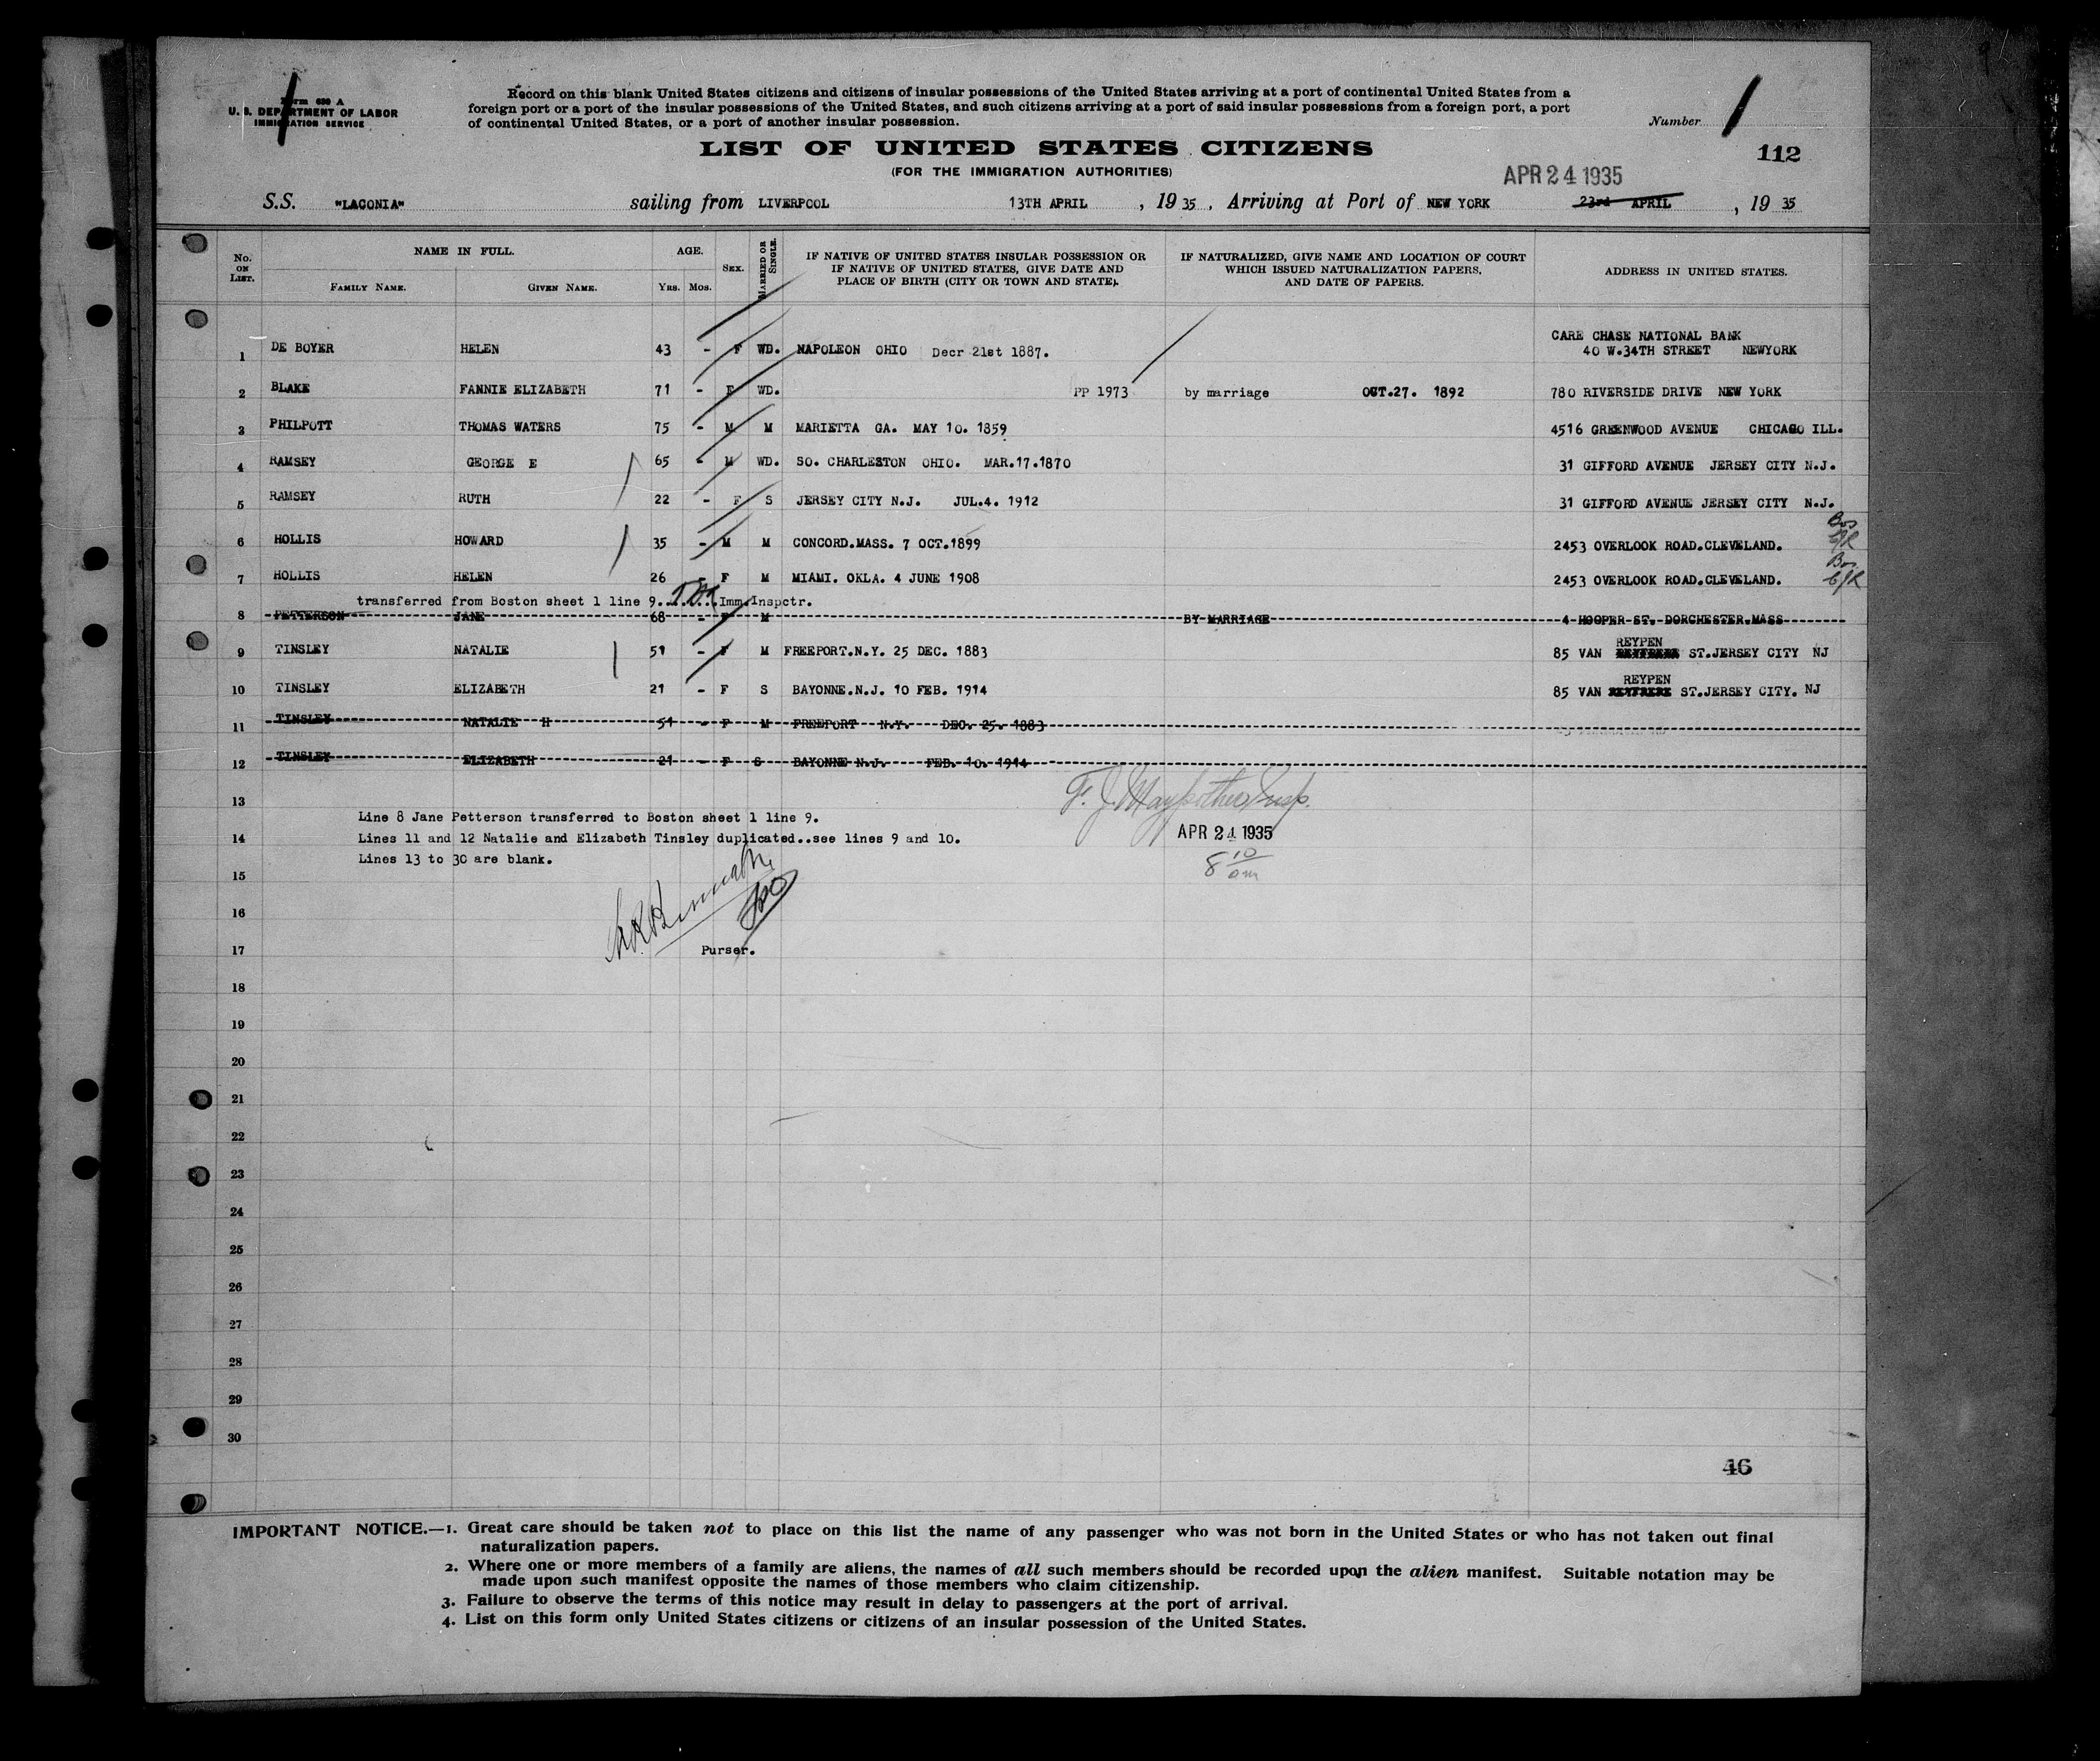 Form 630 A
U. S. DEPARTMENT OF LABOR
IMMIGRATION SERVICE
Record on this blank United States citizens and citizens of insular possessions of the United States arriving at a port of continental United States from a
foreign port or a port of the insular possessions of the United States, and such citizens arriving at a port of said insular possessions from a foreign port, a port
of continental United States, or a port of another insular possession.
Number 1
LIST OF UNITED STATES CITIZENS
112
(FOR THE IMMIGRATION AUTHORITIES)
APR 24 1935
S.S. "LACONIA" sailing from LIVERPOOL 13TH APRIL , 19 35 , Arriving at Port of NEW YORK 23rd APRIL , 19 35
No. ON LIST. NAME IN FULL. FAMILY NAME. GIVEN NAME. AGE. YRS. MOS. SEX. MARRIED OR SINGLE. IF NATIVE OF UNITED STATES INSULAR POSSESSION OR IF NATIVE OF UNITED STATES, GIVE DATE AND PLACE OF BIRTH (CITY OR TOWN AND STATE). IF NATURALIZED, GIVE NAME AND LOCATION OF COURT WHICH ISSUED NATURALIZATION PAPERS, AND DATE OF PAPERS. ADDRESS IN UNITED STATES.
CARE CHASE NATIONAL BANK
1 DE BOYER HELEN 43 - F WD. NAPOLEON OHIO Decr 21st 1887. 40 W.34TH STREET NEWYORK
2 BLAKE FANNIE ELIZABETH 71 - F WD. PP 1973 by marriage OCT.27. 1892 780 RIVERSIDE DRIVE NEW YORK
3 PHILPOTT THOMAS WATERS 75 - M M MARIETTA GA. MAY 10. 1859 4516 GREENWOOD AVENUE CHICAGO ILL.
4 RAMSEY GEORGE E 65 - M WD. SO. CHARLESTON OHIO. MAR.17.1870 31 GIFFORD AVENUE JERSEY CITY N.J.
5 RAMSEY RUTH 22 - F S JERSEY CITY N.J. JUL.4. 1912 31 GIFFORD AVENUE JERSEY CITY N.J.
6 HOLLIS HOWARD 35 - M M CONCORD.MASS. 7 OCT.1899 2453 OVERLOOK ROAD.CLEVELAND. Bos
7 HOLLIS HELEN 26 - F M MIAMI. OKLA. 4 JUNE 1908 2453 OVERLOOK ROAD.CLEVELAND. Bos
transferred from Boston sheet 1 line 9....... Imm.Inspctr.
8 PETTERSON JANE 68 - F M BY MARRIAGE 4 HOOPER ST. DORCHESTER.MASS
REYPEN
9 TINSLEY NATALIE 51 - F M FREEPORT.N.Y. 25 DEC. 1883 85 VAN ST.JERSEY CITY NJ
REYPEN
10 TINSLEY ELIZABETH 21 - F S BAYONNE.N.J. 10 FEB. 1914 85 VAN ST.JERSEY CITY. NJ
11 TINSLEY NATALIE H 51 - F M FREEPORT N.Y. DEC. 25. 1883
12 TINSLEY ELIZABETH 21 - F S BAYONNE N.J. FEB. 10. 1914
13
Line 8 Jane Petterson transferred to Boston sheet 1 line 9.
APR 24 1935
14 Lines 11 and 12 Natalie and Elizabeth Tinsley duplicated..see lines 9 and 10.
Lines 13 to 30 are blank.
8 10 am
15
16
17 Purser.
18
19
20
21
22
23
24
25
26
27
28
29
30
46
IMPORTANT NOTICE.—1. Great care should be taken not to place on this list the name of any passenger who was not born in the United States or who has not taken out final
naturalization papers.
2. Where one or more members of a family are aliens, the names of all such members should be recorded upon the alien manifest. Suitable notation may be
made upon such manifest opposite the names of those members who claim citizenship.
3. Failure to observe the terms of this notice may result in delay to passengers at the port of arrival.
4. List on this form only United States citizens or citizens of an insular possession of the United States.